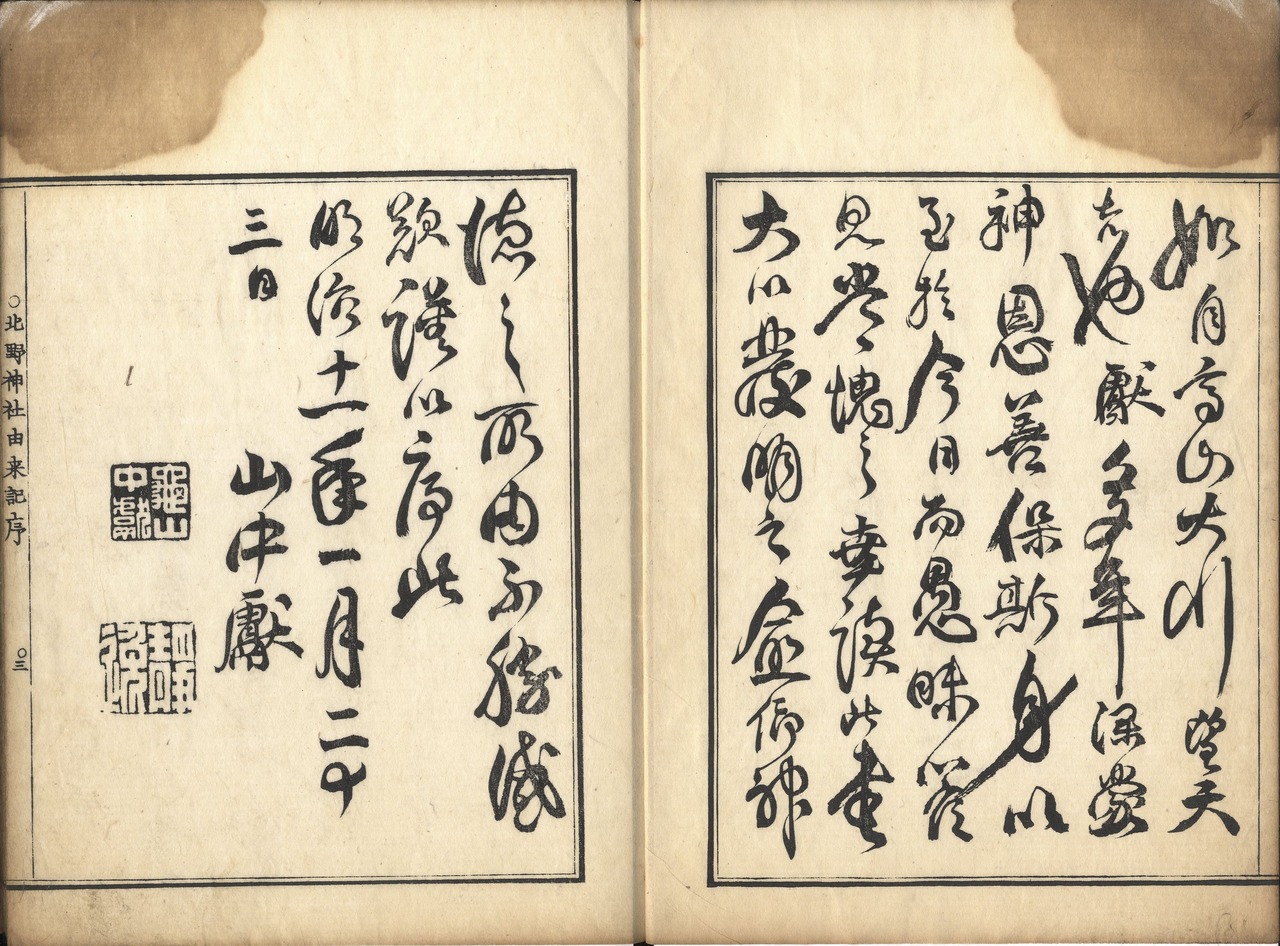 如日月高山大川望天
者也獻多年深蒙
神恩善保斯身以
至於今日而愚昧菲
見常愧之幸讀此書
大以發明之益信神
德之所由而不勝感
歎謹以序此
明治十一年一月二十
三日
山中獻
○北野神社由来記序
○三